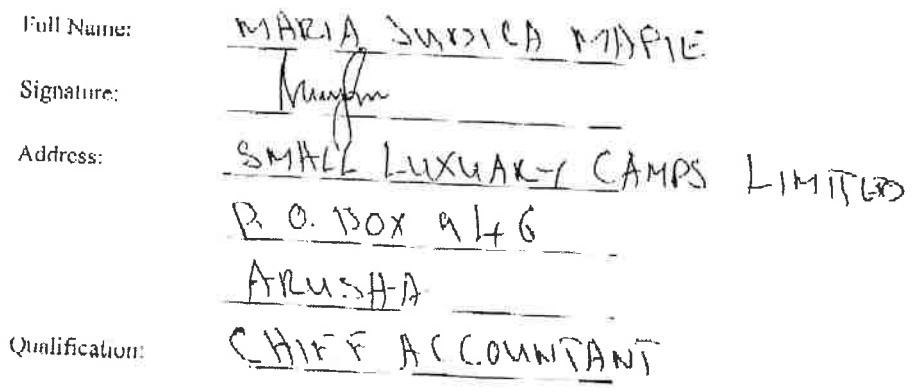 Full Name: MARIA JUDICA MAPIE
Signature:
Address: SMALL LUXUARY CAMPS LIMITED
P.O. BOX 946
ARUSHA
Qualification: CHIEF ACCOUNTANT